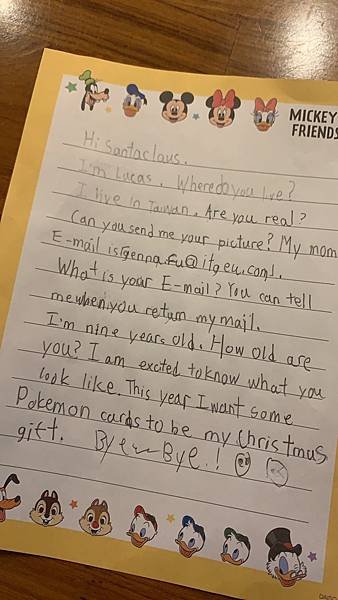 MICKEY
FRIENDS
Hi santaclaus.
I'm Lucas. Where do you live?
I live in Taiwan. Are you real?
Can you send me your picture? My mom
E-mail is
What is your E-mail? You can tell
me when you return my mail.
I'm nine years old. How old are
you? I am excited to know what you
look like. This year I want some
Pokemon cards to be my Christmus
gift. Bye~~Bye.!